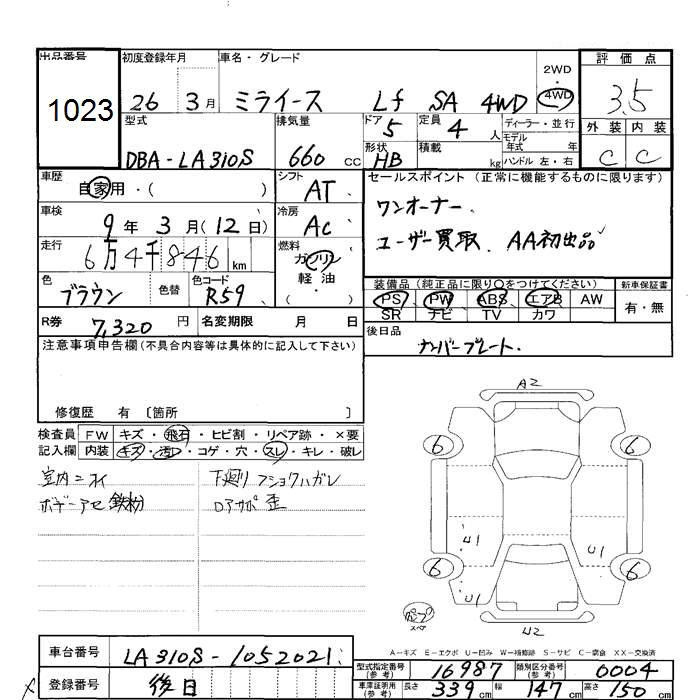 出品番号 初度登録年月 車名・グレード 評価点
1023 26 3月 ミライース Lf SA 4WD 2WD・4WD 3.5
型式 排気量 ドア 定員 ディーラー・並行 外装 内装
DBA-LA310S 660cc 5 4人 モデル年式 年 C C
形状 HB 積載 kg ハンドル 左・右
車歴 自家用・( ) シフト AT セールスポイント(正常に機能するものに限ります)
車検 9年3月(12日) 冷房 AC ワンオーナー、
走行 6万4千846km 燃料 ガソリン 軽油 ( ) ユーザー買取、AA初出品
色 ブラウン 色替 色コード R59 装備品(純正品に限り○をつけてください) 新車保証書
PS PW ABS エアB AW 有・無
SR ナビ TV カワ
R券 7,320円 名変期限 月 日 後日品
ナンバープレート、
注意事項申告欄(不具合内容等は具体的に記入して下さい)
修復歴 有 〔箇所 〕
検査員記入欄 FW キズ・飛石・ヒビ割・リペア跡・×要
内装 キズ・汚レ・コゲ・穴・スレ・キレ・破レ
室内ニオイ 下廻り フショクハガレ
ボデーアセ 鉄粉 ロアサポ 歪
A2
6 6
U1 U1
6 6
U1
パンプ スペア U2
A-キズ E-エクボ U-凹み W-補修跡 S-サビ C-腐食 XX-交換済
車台番号 LA310S-1052021 型式指定番号(参考) 16987 類別区分番号(参考) 0004
登録番号 後日 車庫証明用(参考) 長さ 339cm 幅 147cm 高さ 150cm